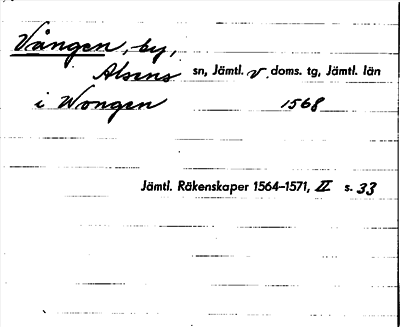 Vången, by,
Alsens sn, Jämtl. v. doms. tg, Jämtl. län
i Wongen 1568
Jämtl. Räkenskaper 1564–1571, II s. 33